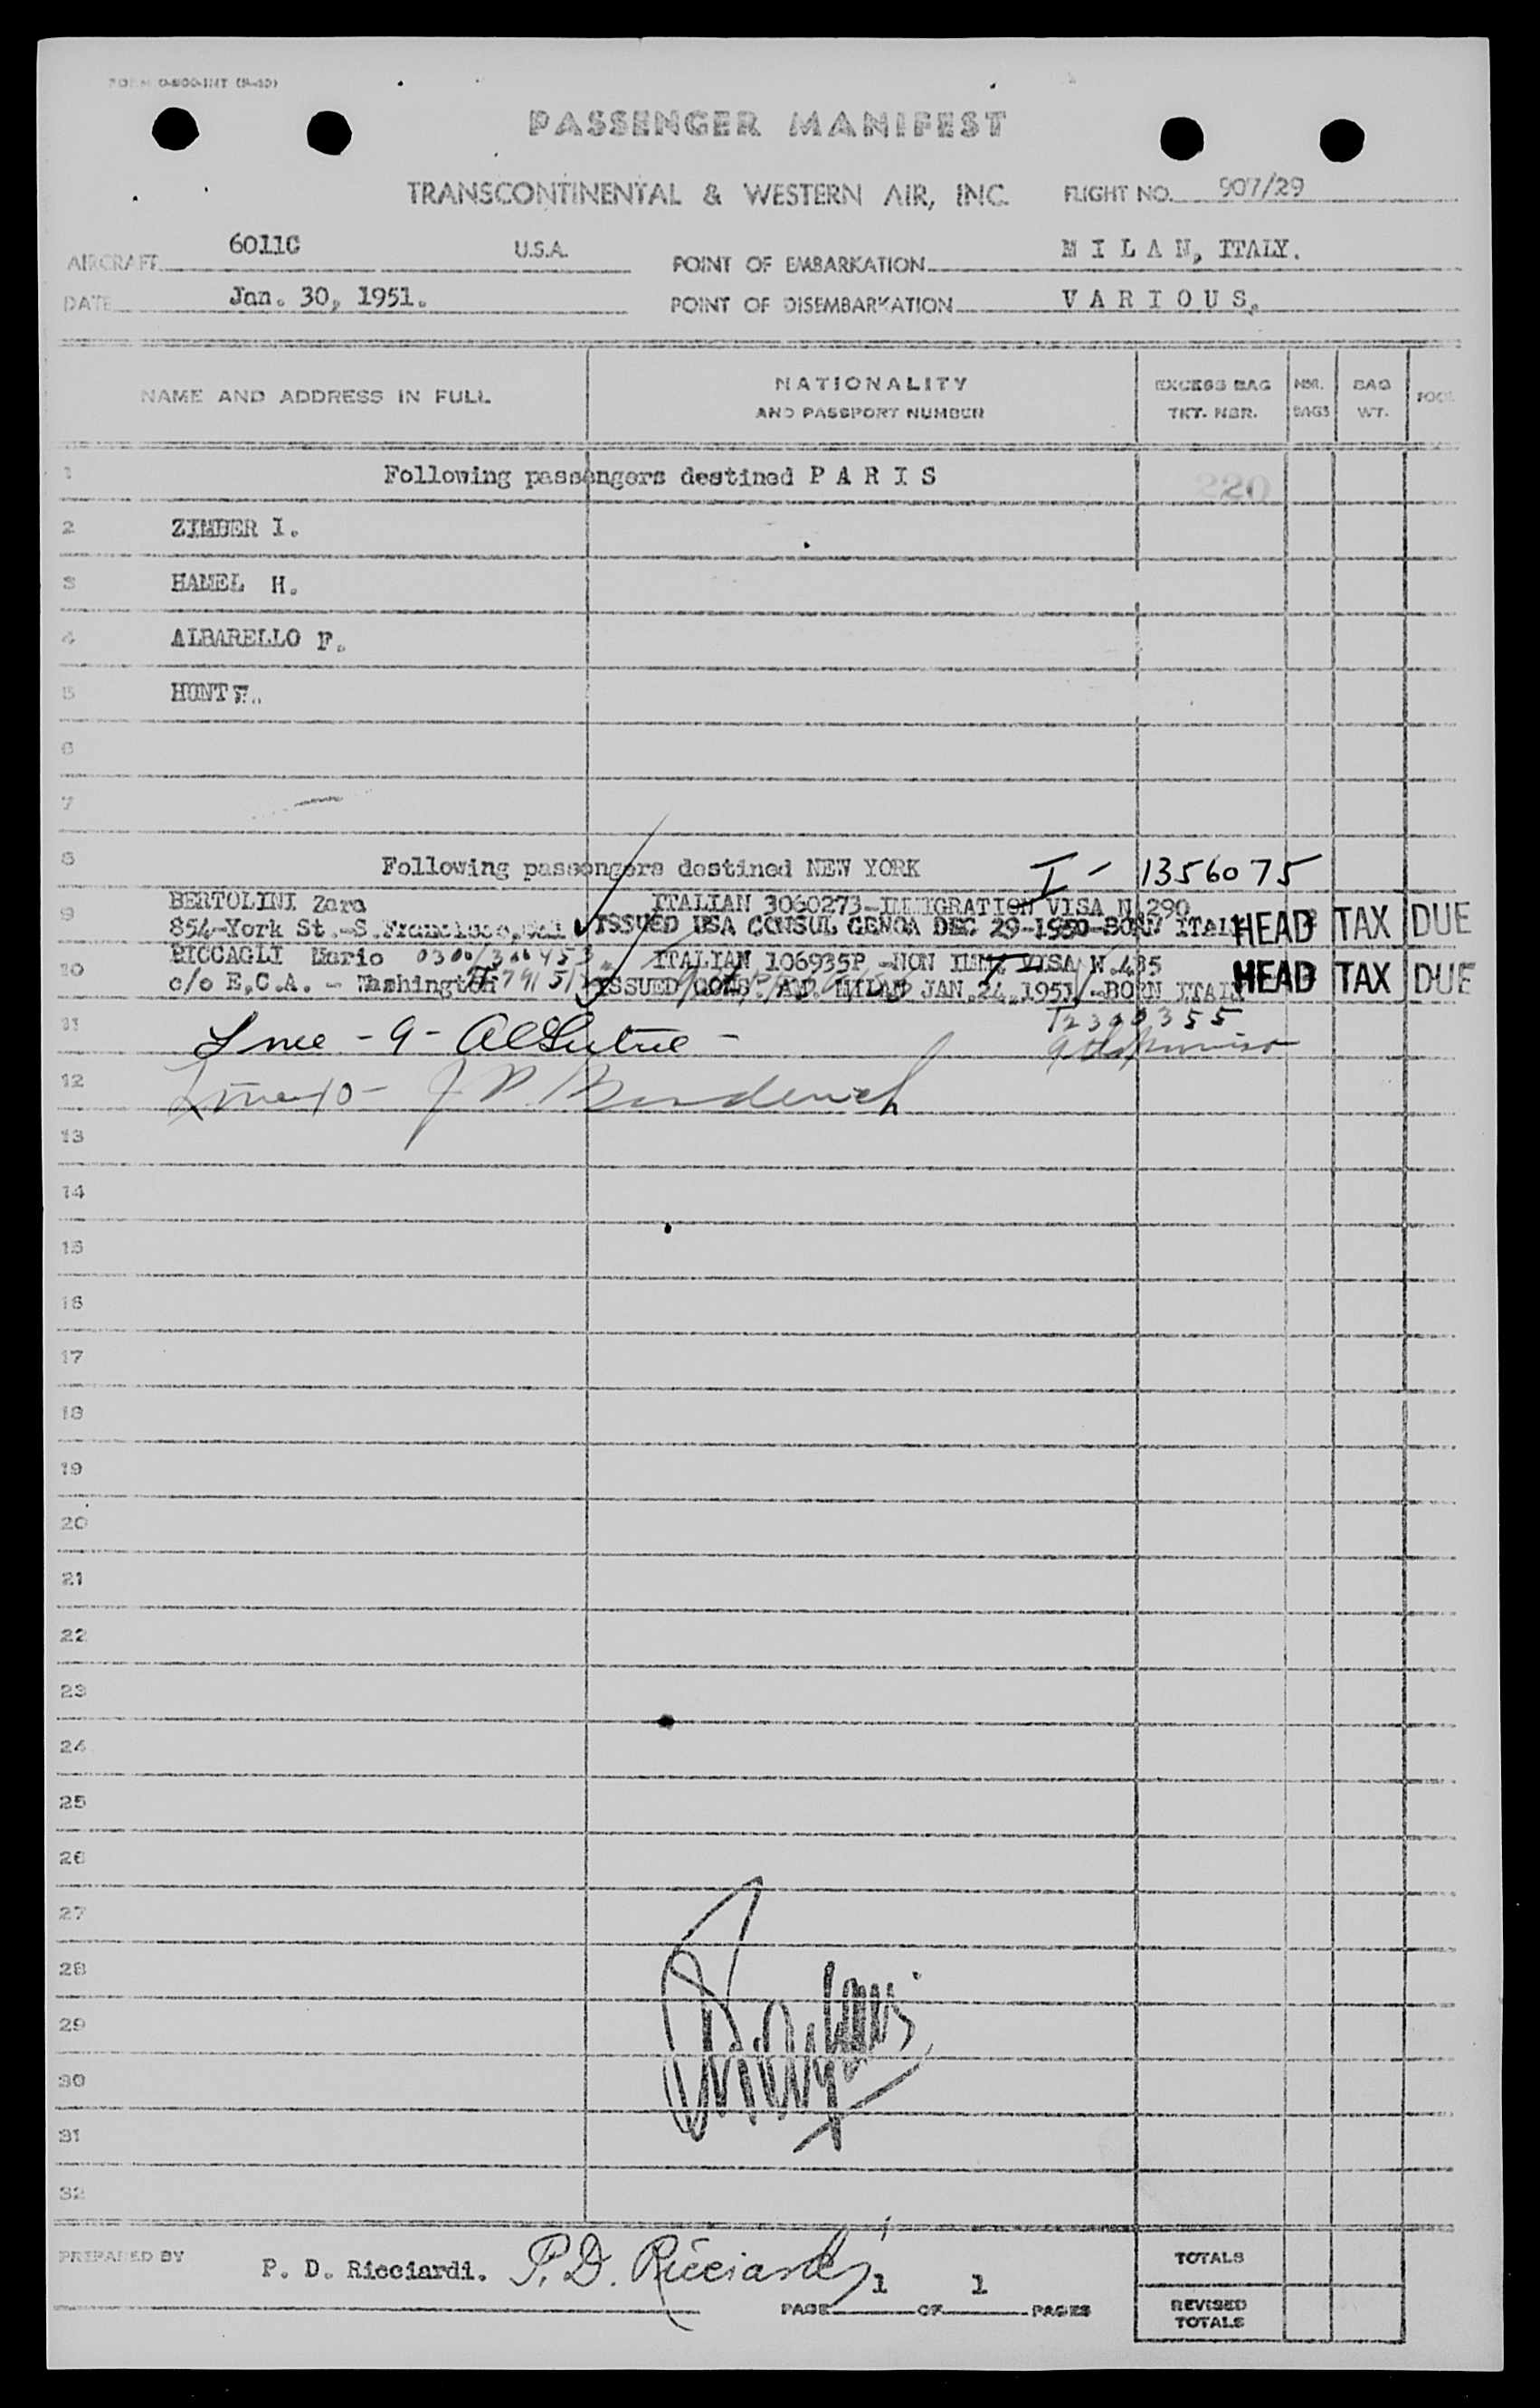 FORM O-800-INT
PASSENGER MANIFEST
TRANSCONTINENTAL & WESTERN AIR, INC. FLIGHT NO. 907/29
AIRCRAFT 6011C U.S.A. POINT OF EMBARKATION M I L A N, ITALY.
DATE Jan. 30, 1951. POINT OF DISEMBARKATION V A R I O U S.
NAME AND ADDRESS IN FULL NATIONALITY AND PASSPORT NUMBER EXCESS BAG TKT. NBR. NBR. BAGS BAG WT.
1 Following passengers destined P A R I S 220
2 ZIMBER I.
3 HAMEL H.
4 ALBARELLO F.
5 HONT
6
7
8 Following passengers destined NEW YORK I - 1356075
9 BERTOLINI Zara ITALIAN 3060273-IMMIGRATION VISA N.290
854-York St.-S.Francisco, Cal ISSUED USA CONSUL GENOA DEC 29-1950-BORN ITALY HEAD TAX DUE
10 RICCAGLI Mario 0300/300453 ITALIAN 106935P -NON IMM. VISA N.485
c/o E.C.A. - Washington ISSUED CONS. AM. MILAN JAN.24.1951.-BORN ITALY HEAD TAX DUE
11 Line - 9 -
12 Line 10 -
13
14
15
16
17
18
19
20
21
22
23
24
25
26
27
28
29
30
31
32
PREPARED BY P. D. Ricciardi. P. D. Ricciardi
PAGE 1 OF 1 PAGES
TOTALS
REVISED TOTALS